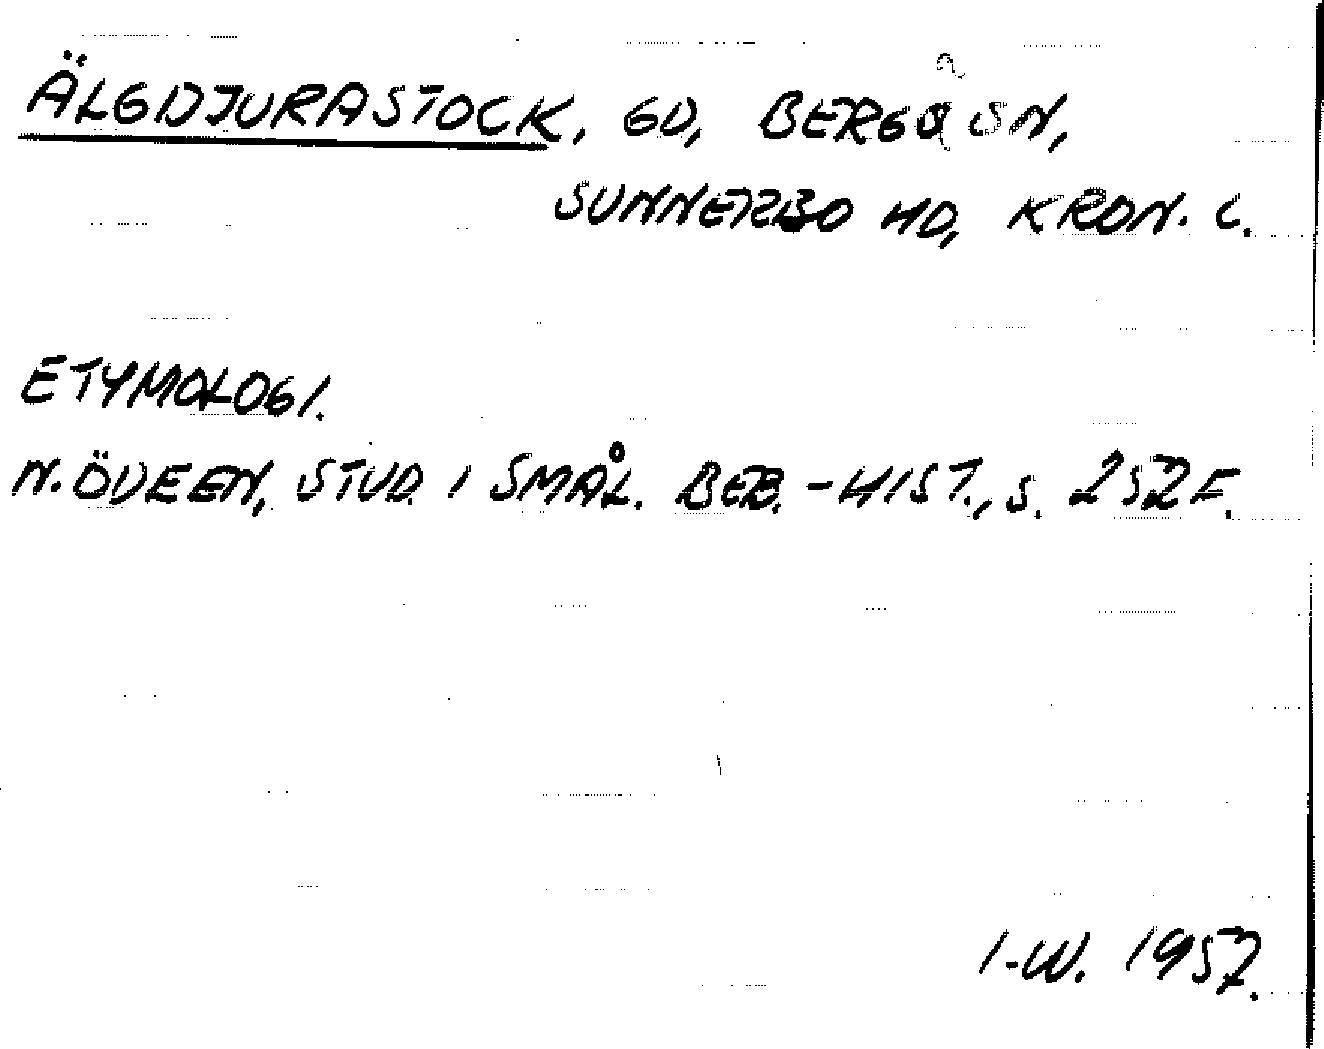 ÄLGDJURASTOCK, GD, BERGA SN,
SUNNERBO HD, KRON. L.
ETYMOLOGI.
N. ÖDEEN, STUD. I SMÅL. BEB.-HIST., S. 252 F.
I-W. 1957.